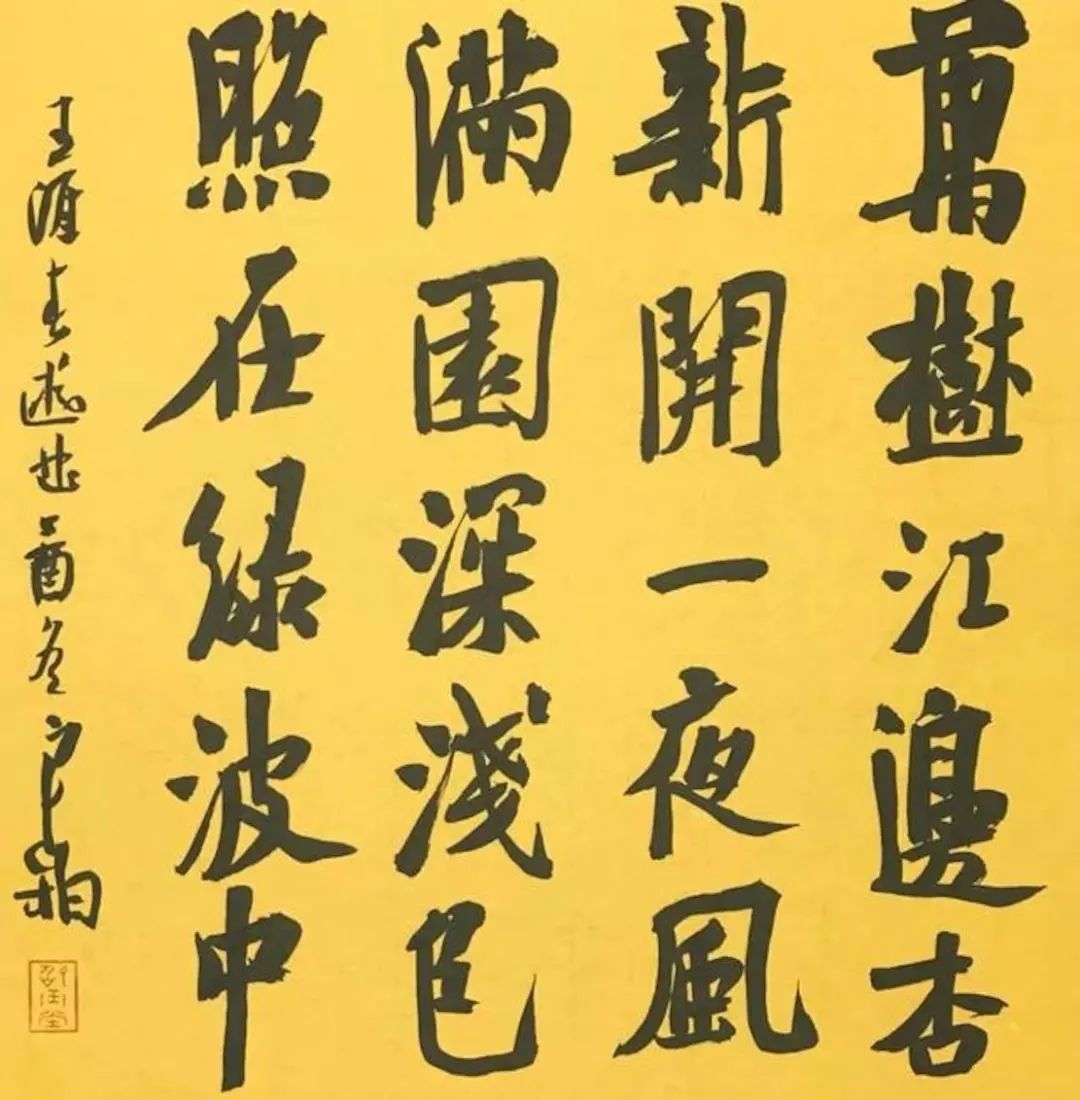 萬樹江邊杏
新開一夜風
滿園深淺色
照在綠波中
王涯春遊曲酉冬